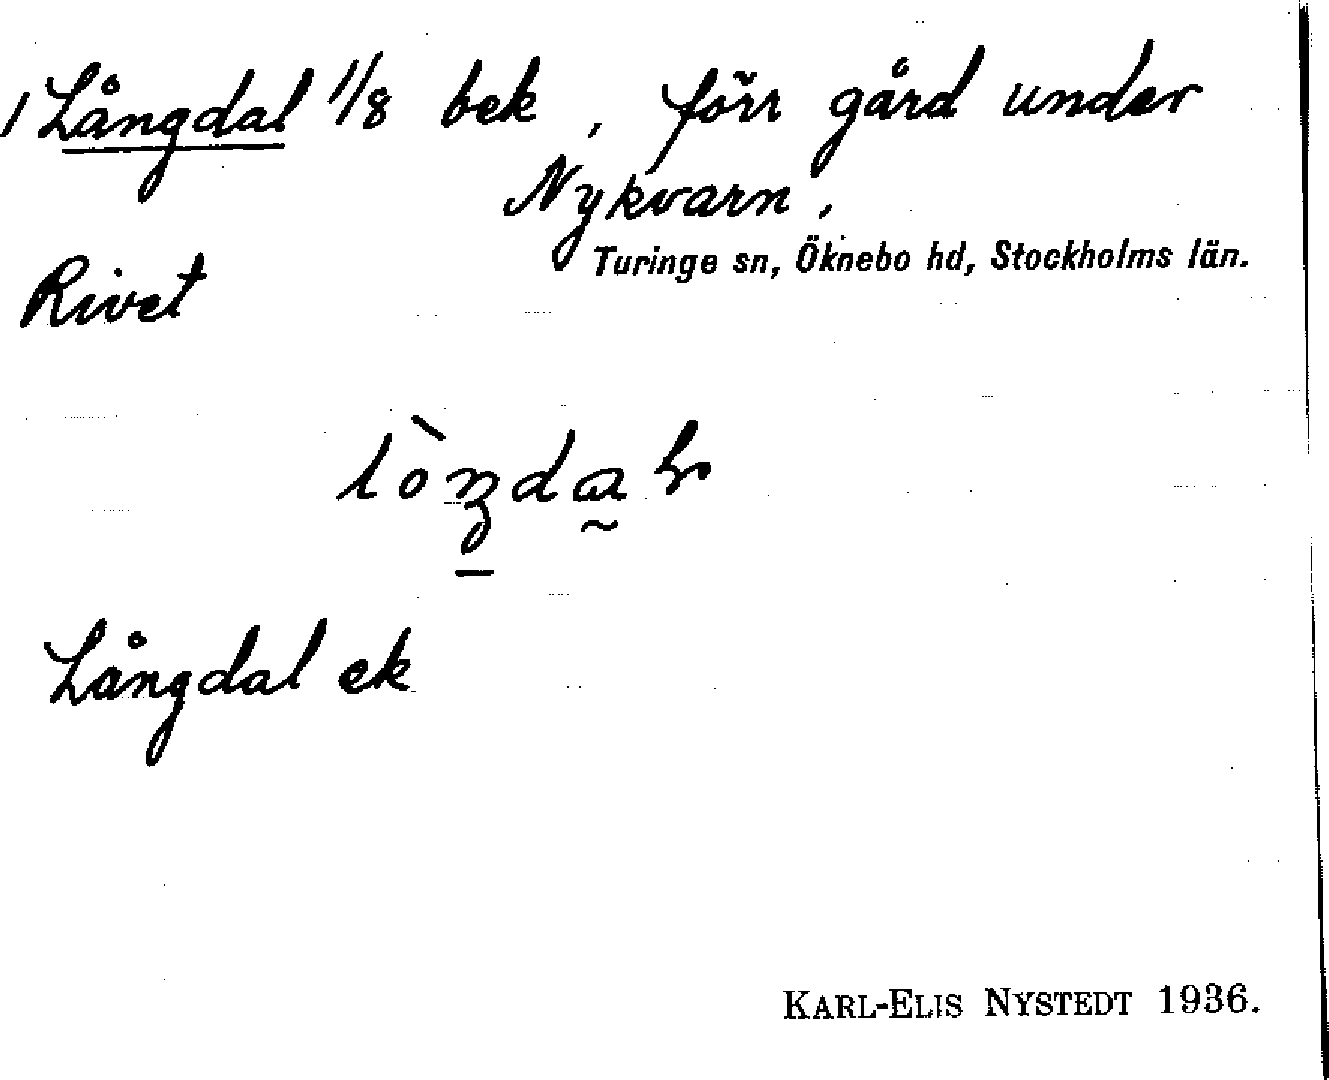 1 Långdal 1/8 bek, förr gård under
Nykvarn.
Turinge sn, Öknebo hd, Stockholms län.
Rivet
Långdal ek
KARL-ELIS NYSTEDT 1936.